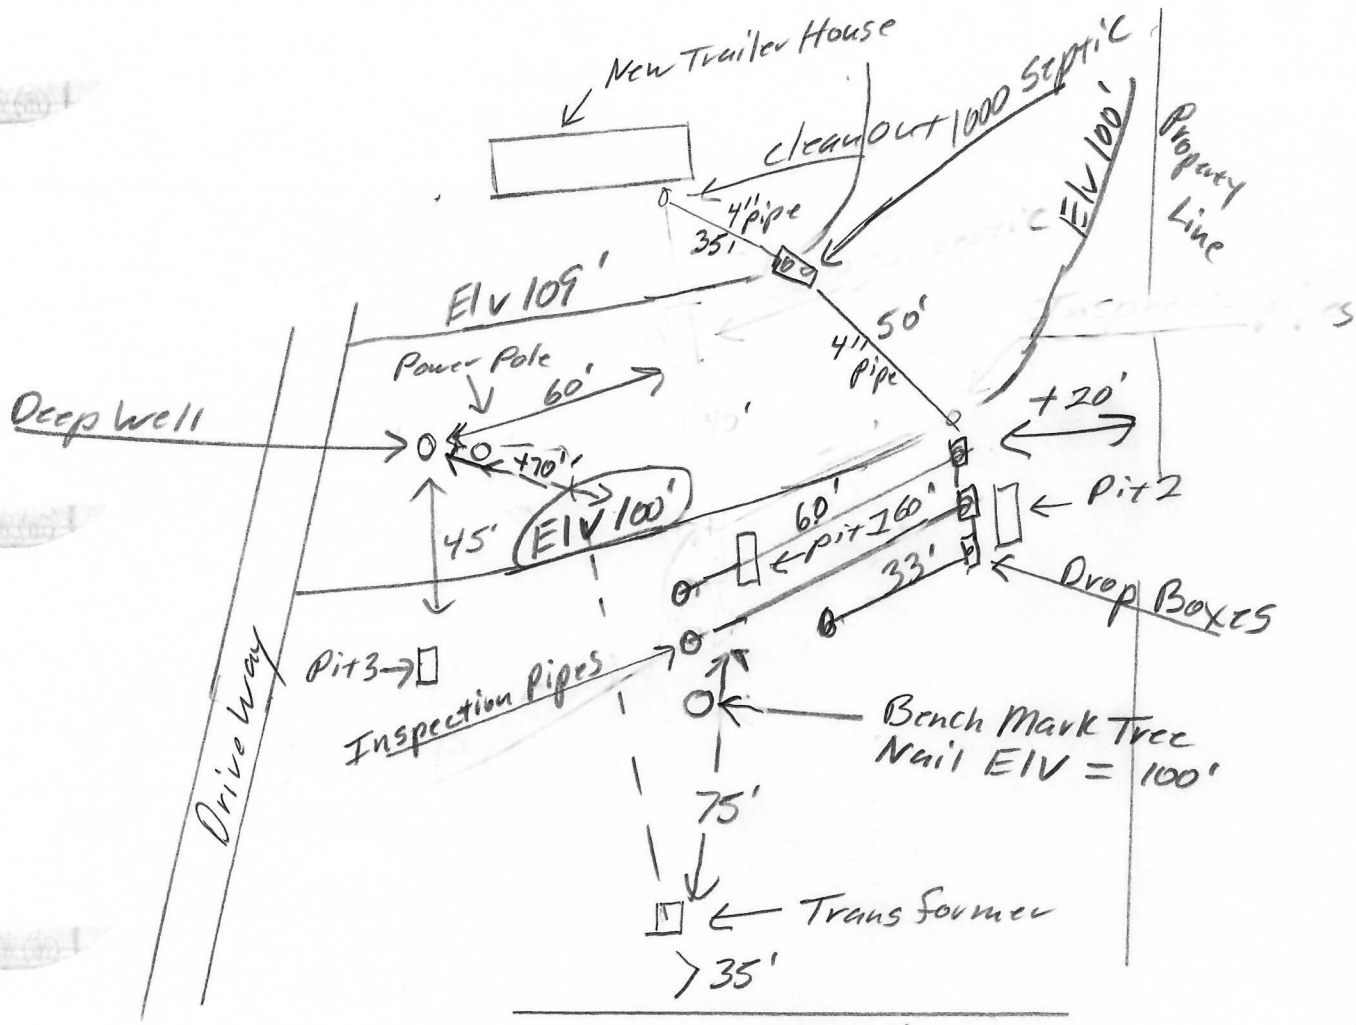 New Trailer House
Clean Out
1000 Septic
Elv 100'
Property
Line
4" pipe
35'
Elv 109'
50'
4"
pipe
Power Pole
60'
Deep Well
+20'
+70'
Elv 100'
45'
60'
Pit 1
60'
Pit 2
33'
Drop Boxes
Pit 3
Inspection Pipes
Drive Way
Bench Mark Tree
Nail Elv = 100'
75'
Transformer
>35'